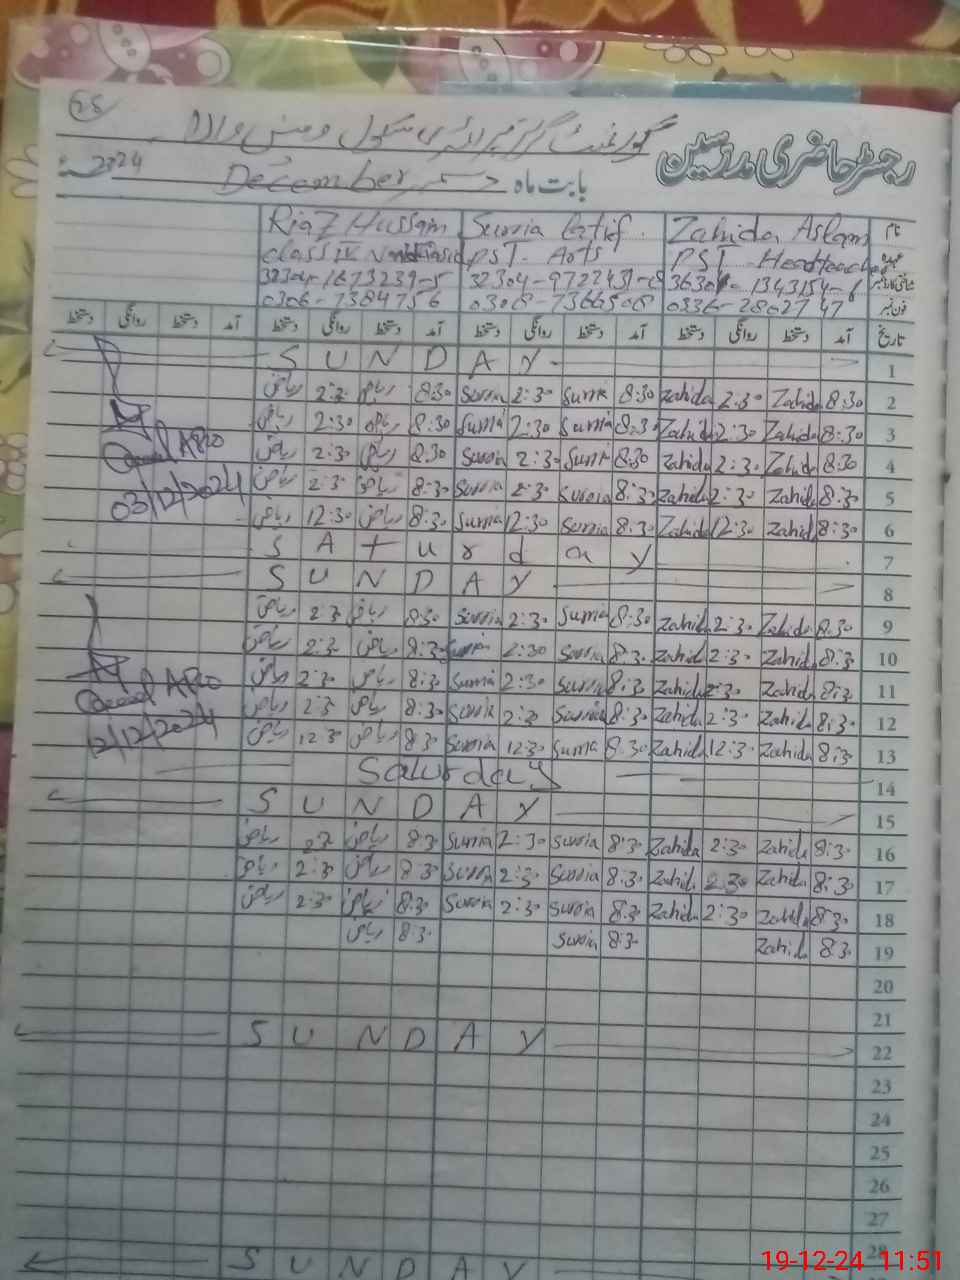 65
گورنمنٹ گرلز پرائمری سکول
رجسٹر حاضری مدرسین
بابت ماہ دسمبر December 2024ء
Zahida Aslam Surria Latif Riaz Hussain نام
PST Headteacher PST Arts Class IV عہدہ
1343154-6 32304-9722431-8 32304-1673239-5
0336-2862747 0306-7366508 0306-7384756 فون نمبر
تاریخ آمد دستخط روانگی دستخط آمد دستخط روانگی دستخط آمد دستخط روانگی دستخط آمد دستخط روانگی دستخط
1 SUNDAY
2 8:30 Zahida 2:30 Zahida 8:30 Surria 2:30 Surria 8:30 ریاض 2:30 ریاض
3 8:30 Zahida 2:30 Zahida 8:30 Surria 2:30 Surria 8:30 ریاض 2:30 ریاض
4 8:30 Zahida 2:30 Zahida 8:30 Surria 2:30 Surria 8:30 ریاض 2:30 ریاض
5 8:30 Zahida 2:30 Zahida 8:30 Surria 2:30 Surria 8:30 ریاض 2:30 ریاض
6 8:30 Zahida 12:30 Zahida 8:30 Surria 12:30 Surria 8:30 ریاض 12:30 ریاض
AEO
03/12/2024
7 Saturday
8 SUNDAY
9 8:30 Zahida 2:30 Zahida 8:30 Surria 2:30 Surria 8:30 ریاض 2:30 ریاض
10 8:30 Zahida 2:30 Zahida 8:30 Surria 2:30 Surria 8:30 ریاض 2:30 ریاض
11 8:30 Zahida 2:30 Zahida 8:30 Surria 2:30 Surria 8:30 ریاض 2:30 ریاض
12 8:30 Zahida 2:30 Zahida 8:30 Surria 2:30 Surria 8:30 ریاض 2:30 ریاض
13 8:30 Zahida 12:30 Zahida 8:30 Surria 12:30 Surria 8:30 ریاض 12:30 ریاض
AEO
12/12/2024
14 Saturday
15 SUNDAY
16 8:30 Zahida 2:30 Zahida 8:30 Surria 2:30 Surria 8:30 ریاض 2:30 ریاض
17 8:30 Zahida 2:30 Zahida 8:30 Surria 2:30 Surria 8:30 ریاض 2:30 ریاض
18 8:30 Zahida 2:30 Zahida 8:30 Surria 2:30 Surria 8:30 ریاض 2:30 ریاض
19 8:30 Zahida 8:30 Surria 8:30 ریاض
20
21
22 SUNDAY
23
24
25
26
27
28
SUNDAY
19-12-24 11:51